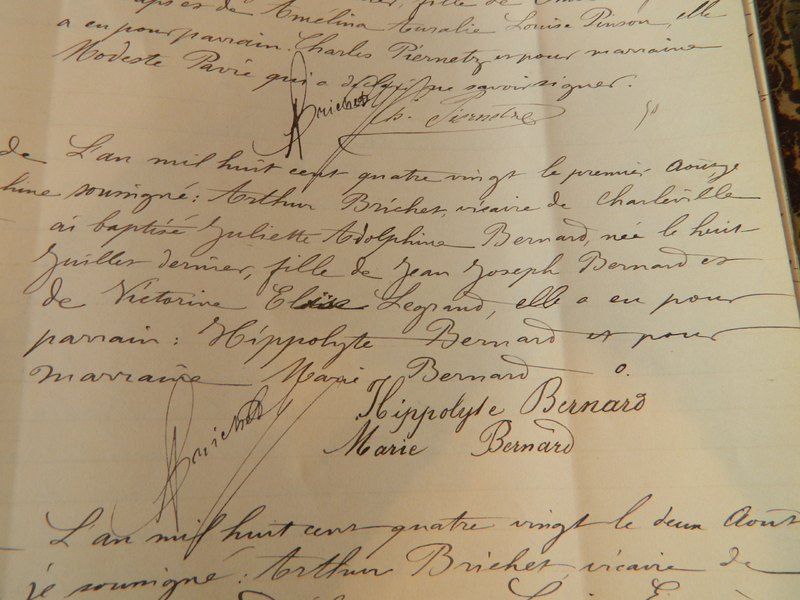 et de Amélina Auralie Louise Pinson, elle
a eu pour parrain Charles Piernetz et pour marraine
Modeste Pavié qui a déclaré ne savoir signer.
Brichet Ch. Piernetz
de L'an mil huit cent quatre vingt le premier Août je
soussigné: Arthur Brichet, vicaire de Charleville
ai baptisé Juliette Adolphine Bernard, née le huit
Juillet dernier, fille de Jean Joseph Bernard et
de Victorine Elise Legrand, elle a eu pour
parrain: Hippolyte Bernard et pour
marraine Marie Bernard
Hippolyte Bernard
Brichet Marie Bernard
L'an mil huit cent quatre vingt le deux Août
je soussigné: Arthur Brichet, vicaire de